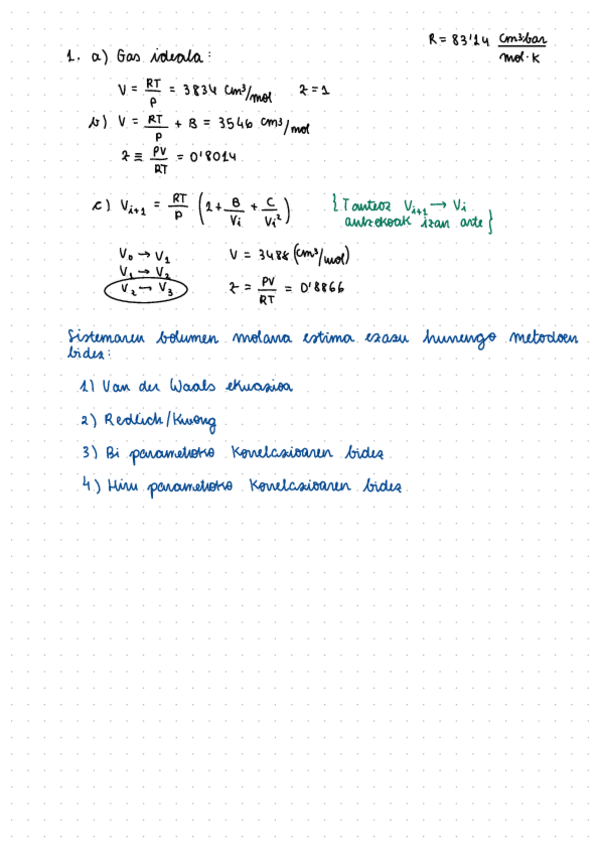 R = 83'14 cm³·bar / mol·K
1. a) Gas ideala:
V = RT/P = 3834 cm³/mol z = 1
b) V = RT/P + B = 3546 cm³/mol
z ≡ PV/RT = 0'8014
c) Vi+1 = RT/P (1 + B/Vi + C/Vi²) {Tanteoz Vi+1 → Vi
aurekoak izan arte}
V₀ → V₁ V = 3488 (cm³/mol)
V₁ → V₂
V₂ → V₃ z = PV/RT = 0'8866
Sistemaren bolumen molarra estima ezazu hurrengo metodoen
bidez:
1) Van der Waals ekuazioa
2) Redlich/Kwong
3) Bi parametroko Korrelazioaren bidez
4) Hiru parametroko Korrelazioaren bidez